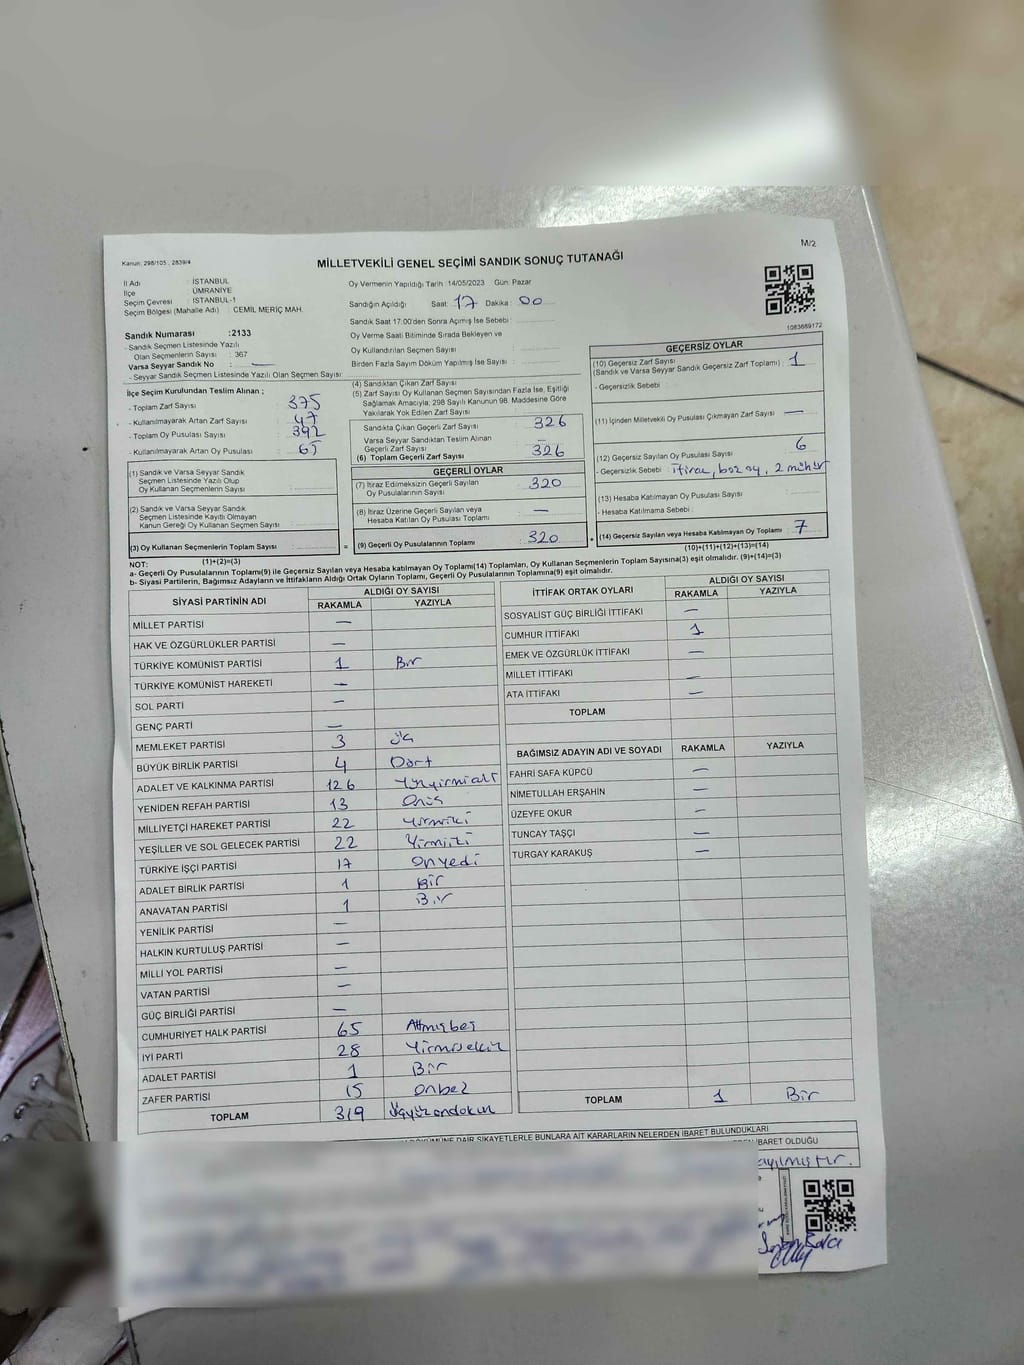 Kanun: 298/105, 2839/4
M/2
MİLLETVEKİLİ GENEL SEÇİMİ SANDIK SONUÇ TUTANAĞI
İl Adı : İSTANBUL
İlçe : ÜMRANİYE
Seçim Çevresi : İSTANBUL-1
Seçim Bölgesi (Mahalle Adı) : CEMİL MERİÇ MAH.
Sandık Numarası :2133
- Sandık Seçmen Listesinde Yazılı
Olan Seçmenlerin Sayısı : 367
Varsa Seyyar Sandık No : —
- Seyyar Sandık Seçmen Listesinde Yazılı Olan Seçmen Sayısı:
Oy Vermenin Yapıldığı Tarih : 14/05/2023 Gün: Pazar
Sandığın Açıldığı Saat: 17 Dakika: 00
Sandık Saat 17:00'den Sonra Açmış İse Sebebi :
Oy Verme Saati Bitiminde Sırada Bekleyen ve
Oy Kullandırılan Seçmen Sayısı :
Birden Fazla Sayım Döküm Yapılmış İse Sayısı :
1083689172
İlçe Seçim Kurulundan Teslim Alınan ;
- Toplam Zarf Sayısı : 375
- Kullanılmayarak Artan Zarf Sayısı : 47
- Toplam Oy Pusulası Sayısı : 392
- Kullanılmayarak Artan Oy Pusulası : 65
(1) Sandık ve Varsa Seyyar Sandık
Seçmen Listesinde Yazılı Olup
Oy Kullanan Seçmenlerin Sayısı :
(2) Sandık ve Varsa Seyyar Sandık
Seçmen Listesinde Kayıtlı Olmayan
Kanun Gereği Oy Kullanan Seçmen Sayısı :
(3) Oy Kullanan Seçmenlerin Toplam Sayısı :
(1)+(2)=(3)
(4) Sandıktan Çıkan Zarf Sayısı
(5) Zarf Sayısı Oy Kullanan Seçmen Sayısından Fazla İse, Eşitliği
Sağlamak Amacıyla, 298 Sayılı Kanunun 98. Maddesine Göre
Yakılarak Yok Edilen Zarf Sayısı :
Sandıkta Çıkan Geçerli Zarf Sayısı : 326
Varsa Seyyar Sandıktan Teslim Alınan
Geçerli Zarf Sayısı : —
(6) Toplam Geçerli Zarf Sayısı : 326
GEÇERLİ OYLAR
(7) İtiraz Edilmeksizin Geçerli Sayılan
Oy Pusulalarının Sayısı : 320
(8) İtiraz Üzerine Geçerli Sayılan veya
Hesaba Katılan Oy Pusulası Toplamı : —
= (9) Geçerli Oy Pusulalarının Toplamı : 320 +
GEÇERSİZ OYLAR
(10) Geçersiz Zarf Sayısı
(Sandık ve Varsa Seyyar Sandık Geçersiz Zarf Toplamı) : 1
- Geçersizlik Sebebi :
(11) İçinden Milletvekili Oy Pusulası Çıkmayan Zarf Sayısı : —
(12) Geçersiz Sayılan Oy Pusulası Sayısı : 6
- Geçersizlik Sebebi : itiraz, boş oy, 2 mühür
(13) Hesaba Katılmayan Oy Pusulası Sayısı :
- Hesaba Katılmama Sebebi :
(14) Geçersiz Sayılan veya Hesaba Katılmayan Oy Toplamı : 7
(10)+(11)+(12)+(13)=(14)
NOT:
a- Geçerli Oy Pusulalarının Toplamı(9) ile Geçersiz Sayılan veya Hesaba katılmayan Oy Toplamı(14) Toplamları, Oy Kullanan Seçmenlerin Toplam Sayısına(3) eşit olmalıdır. (9)+(14)=(3)
b- Siyasi Partilerin, Bağımsız Adayların ve İttifakların Aldığı Ortak Oyların Toplamı, Geçerli Oy Pusulalarının Toplamına(9) eşit olmalıdır.
SİYASİ PARTİNİN ADI ALDIĞI OY SAYISI
RAKAMLA YAZIYLA
MİLLET PARTİSİ —
HAK VE ÖZGÜRLÜKLER PARTİSİ —
TÜRKİYE KOMÜNİST PARTİSİ 1 Bir
TÜRKİYE KOMÜNİST HAREKETİ —
SOL PARTİ —
GENÇ PARTİ —
MEMLEKET PARTİSİ 3 üç
BÜYÜK BİRLİK PARTİSİ 4 Dört
ADALET VE KALKINMA PARTİSİ 126 Yüzyirmialtı
YENİDEN REFAH PARTİSİ 13 Onüç
MİLLİYETÇİ HAREKET PARTİSİ 22 Yirmiiki
YEŞİLLER VE SOL GELECEK PARTİSİ 22 Yirmiiki
TÜRKİYE İŞÇİ PARTİSİ 17 Onyedi
ADALET BİRLİK PARTİSİ 1 Bir
ANAVATAN PARTİSİ 1 Bir
YENİLİK PARTİSİ —
HALKIN KURTULUŞ PARTİSİ —
MİLLİ YOL PARTİSİ —
VATAN PARTİSİ —
GÜÇ BİRLİĞİ PARTİSİ —
CUMHURİYET HALK PARTİSİ 65 Altmışbeş
İYİ PARTİ 28 Yirmisekiz
ADALET PARTİSİ 1 Bir
ZAFER PARTİSİ 15 Onbeş
TOPLAM 319 Üçyüzondokuz
İTTİFAK ORTAK OYLARI ALDIĞI OY SAYISI
RAKAMLA YAZIYLA
SOSYALİST GÜÇ BİRLİĞİ İTTİFAKI —
CUMHUR İTTİFAKI 1
EMEK VE ÖZGÜRLÜK İTTİFAKI —
MİLLET İTTİFAKI —
ATA İTTİFAKI —
TOPLAM
BAĞIMSIZ ADAYIN ADI VE SOYADI RAKAMLA YAZIYLA
FAHRİ SAFA KÜPCÜ —
NİMETULLAH ERŞAHİN —
ÜZEYFE OKUR —
TUNCAY TAŞÇI —
TURGAY KARAKUŞ —
TOPLAM 1 Bir
DÖKÜMÜNE DAİR ŞİKAYETLERLE BUNLARA AİT KARARLARIN NELERDEN İBARET BULUNDUKLARI
İBARET OLDUĞU